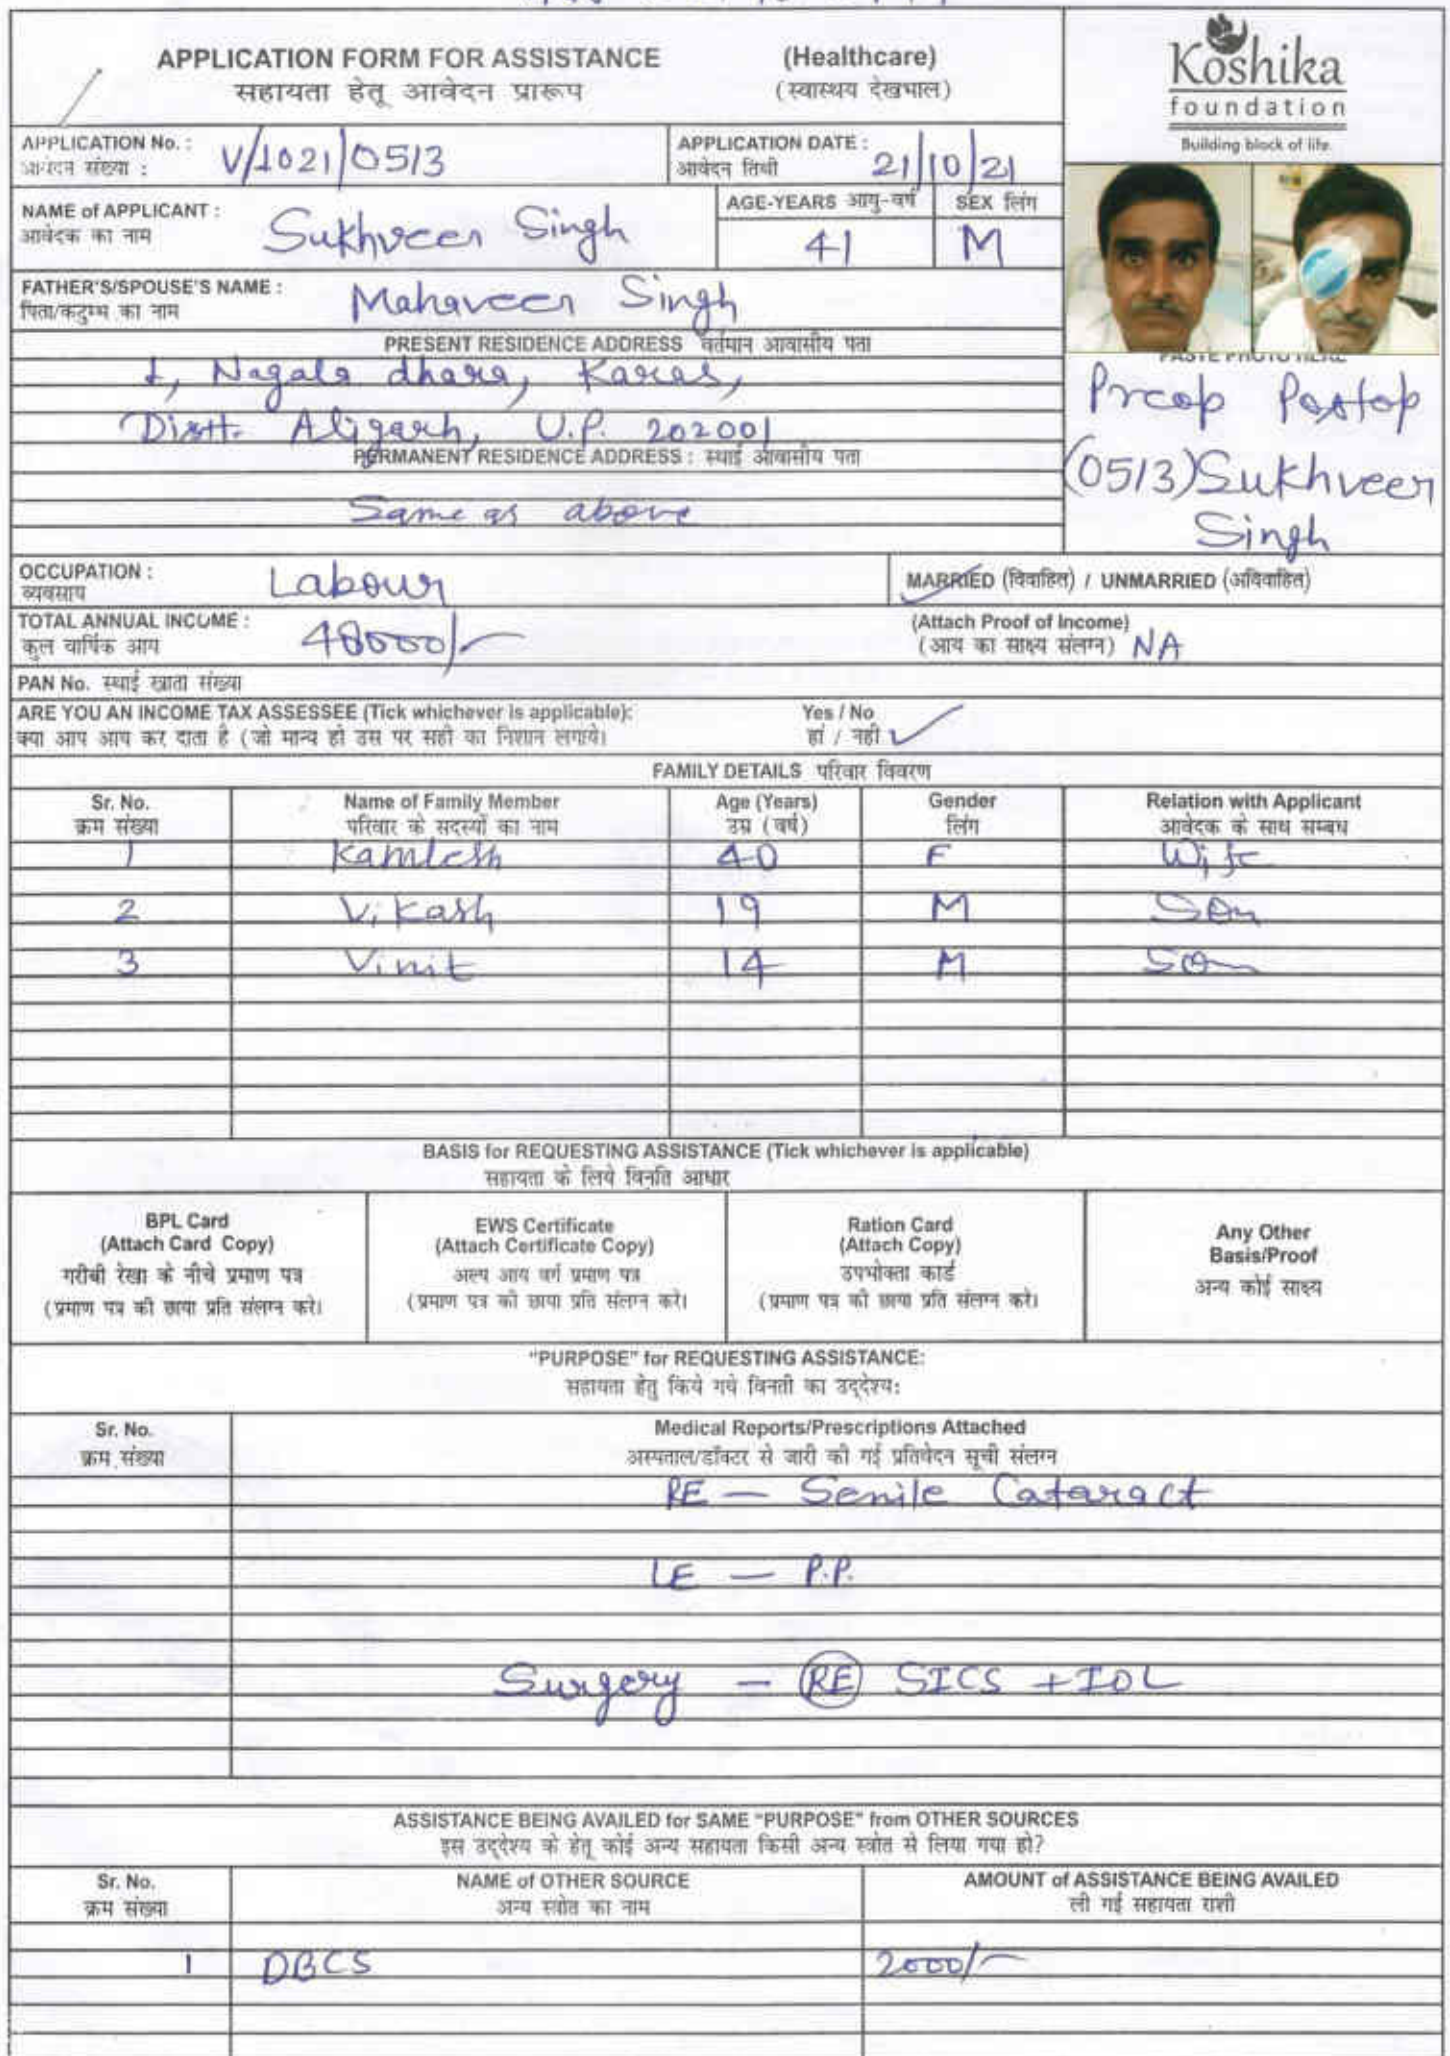 APPLICATION FORM FOR ASSISTANCE (Healthcare)
सहायता हेतू आवेदन प्रारूप (स्वास्थय देखभाल)
Koshika
foundation
Building block of life.
APPLICATION No. : V/1021/0513
आवेदन संख्या :
APPLICATION DATE : 21/10/21
आवेदन तिथी
NAME of APPLICANT : Sukhveer Singh
आवेदक का नाम
AGE-YEARS आयु-वर्ष SEX लिंग
41 M
FATHER'S/SPOUSE'S NAME : Mahaveer Singh
पिता/कटुम्भ का नाम
PRESENT RESIDENCE ADDRESS वर्तमान आवासीय पता
1, Nagala dhara, Karas,
Distt. Aligarh, U.P. 202001
PERMANENT RESIDENCE ADDRESS : स्थाई आवासीय पता
Same as above
PASTE PHOTO HERE
Preop Postop
(0513) Sukhveer
Singh
OCCUPATION : Labour
व्यवसाय
MARRIED (विवाहित) / UNMARRIED (अविवाहित)
TOTAL ANNUAL INCOME : 48000/-
कुल वार्षिक आय
(Attach Proof of Income)
(आय का साक्ष्य संलग्न) NA
PAN No. स्थाई खाता संख्या
ARE YOU AN INCOME TAX ASSESSEE (Tick whichever is applicable): Yes / No
क्या आप आप कर दाता है (जो मान्य हो उस पर सही का निशान लगाये। हां / नही
FAMILY DETAILS परिवार विवरण
Sr. No. Name of Family Member Age (Years) Gender Relation with Applicant
क्रम संख्या परिवार के सदस्यों का नाम उम्र (वर्ष) लिंग आवेदक के साथ सम्बध
1 Kamlesh 40 F Wife
2 Vikash 19 M Son
3 Vinit 14 M Son
BASIS for REQUESTING ASSISTANCE (Tick whichever is applicable)
सहायता के लिये विनति आधार
BPL Card
(Attach Card Copy)
गरीबी रेखा के नीचे प्रमाण पत्र
(प्रमाण पत्र की छाया प्रति संलग्न करे।
EWS Certificate
(Attach Certificate Copy)
अल्प आय वर्ग प्रमाण पत्र
(प्रमाण पत्र की छाया प्रति संलग्न करे।
Ration Card
(Attach Copy)
उपभोक्ता कार्ड
(प्रमाण पत्र की छाया प्रति संलग्न करे।
Any Other
Basis/Proof
अन्य कोई साक्ष्य
"PURPOSE" for REQUESTING ASSISTANCE:
सहायता हेतु किये गये विनती का उद्देश्य:
Sr. No. Medical Reports/Prescriptions Attached
क्रम संख्या अस्पताल/डॉक्टर से जारी की गई प्रतिवेदन सूची संलग्न
RE — Senile Cataract
LE — P.P.
Surgery — RE SICS + IOL
ASSISTANCE BEING AVAILED for SAME "PURPOSE" from OTHER SOURCES
इस उद्देश्य के हेतू कोई अन्य सहायता किसी अन्य स्त्रोत से लिया गया हो?
Sr. No. NAME of OTHER SOURCE AMOUNT of ASSISTANCE BEING AVAILED
क्रम संख्या अन्य स्त्रोत का नाम ली गई सहायता राशी
1 DBCS 2000/-